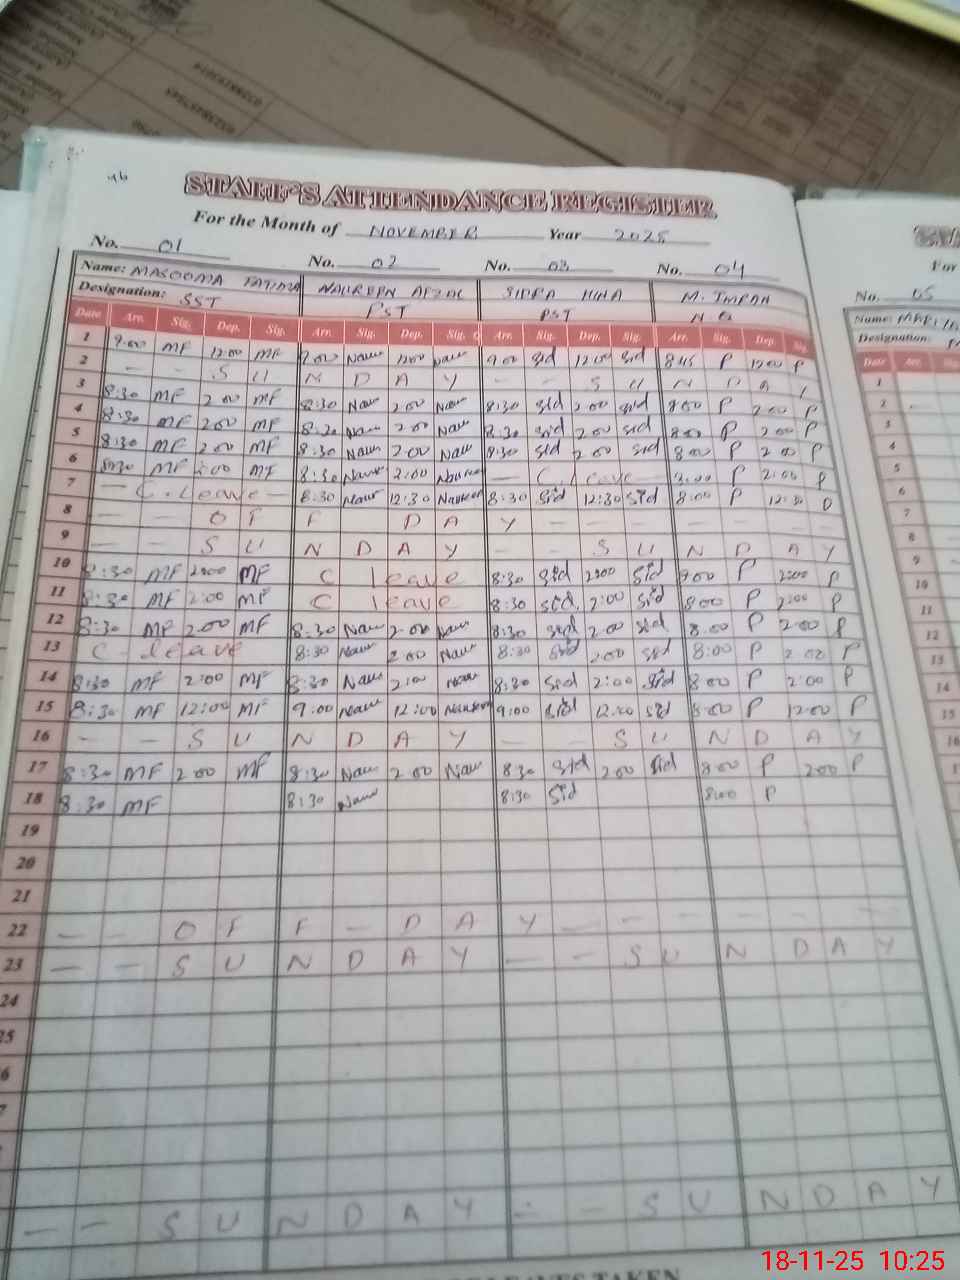 STAFF'S ATTENDANCE REGISTER
For the Month of NOVEMBER Year 2025
No. 01 No. 02 No. 03 No. 04 No. 05
Name: MASOOMA NAUREEN AFZAL HINA M. IMRAN Name:
Designation: SST PST PST Designation:
Date Arr. Sig. Dep. Sig. Arr. Sig. Dep. Sig. Arr. Sig. Dep. Sig. Arr. Sig. Dep. Sig. Date Arr.
1 9:00 MF 12:00 MF 9:00 Nau 12:00 Nau 9:00 Sid 12:00 Sid 8:45 P 12:00 P 1
2 - - S U N D A Y - - S U N D A Y 2
3 8:30 MF 2:00 MF 8:30 Nau 2:00 Nau 8:30 Sid 2:00 Sid 8:00 P 2:00 P 3
4 8:30 MF 2:00 MF 8:30 Nau 2:00 Nau 8:30 Sid 2:00 Sid 8:00 P 2:00 P 4
5 8:30 MF 2:00 MF 8:30 Nau 2:00 Nau 8:30 Sid 2:00 Sid 8:00 P 2:00 P 5
6 8:30 MF 2:00 MF 8:30 Nau 2:00 Naureen - C. leave - 8:00 P 2:00 P 6
7 - C. leave - 8:30 Naur 12:30 Naureen 8:30 Sid 12:30 Sid 8:00 P 12:30 P 7
8 - - O F F D A Y - - - - - - - 8
9 - - S U N D A Y - - S U N D A Y 9
10 8:30 MF 2:00 MF C leave 8:30 Sid 2:00 Sid 8:00 P 2:00 P 10
11 8:30 MF 2:00 MF C leave 8:30 Sid 2:00 Sid 8:00 P 2:00 P 11
12 8:30 MF 2:00 MF 8:30 Nau 2:00 Nau 8:30 Sid 2:00 Sid 8:00 P 2:00 P 12
13 C - leave 8:30 Nau 2:00 Nau 8:30 Sid 2:00 Sid 8:00 P 2:00 P 13
14 8:30 MF 2:00 MF 8:30 Nau 2:00 Nau 8:30 Sid 2:00 Sid 8:00 P 2:00 P 14
15 8:30 MF 12:00 MF 9:00 Nau 12:00 Naureen 9:00 Sid 12:00 Sid 8:00 P 12:00 P 15
16 - - S U N D A Y - - S U N D A Y 16
17 8:30 MF 2:00 MF 8:30 Nau 2:00 Nau 8:30 Sid 2:00 Sid 8:00 P 2:00 P
18 8:30 MF 8:30 Nau 8:30 Sid 8:00 P
19
20
21
22 - - O F F - D A Y - - - - - - -
23 - - S U N D A Y - - S U N D A Y
24
- - S U N D A Y - - S U N D A Y
LEAVES TAKEN
18-11-25 10:25